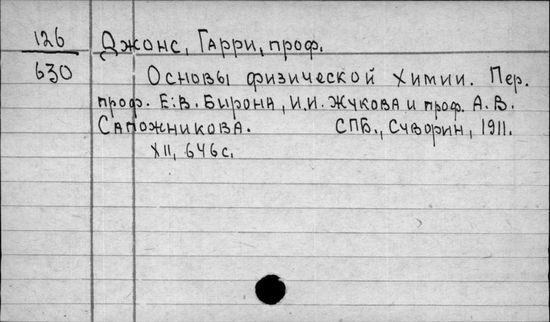 126 Джонс, Гарри, проф.
630 Основы физической химии. Пер.
проф. Е.В. Бирона, И.И. Жукова и проф. А.В.
Сапожникова. СПБ., Суворин, 1911.
XII, 646с.